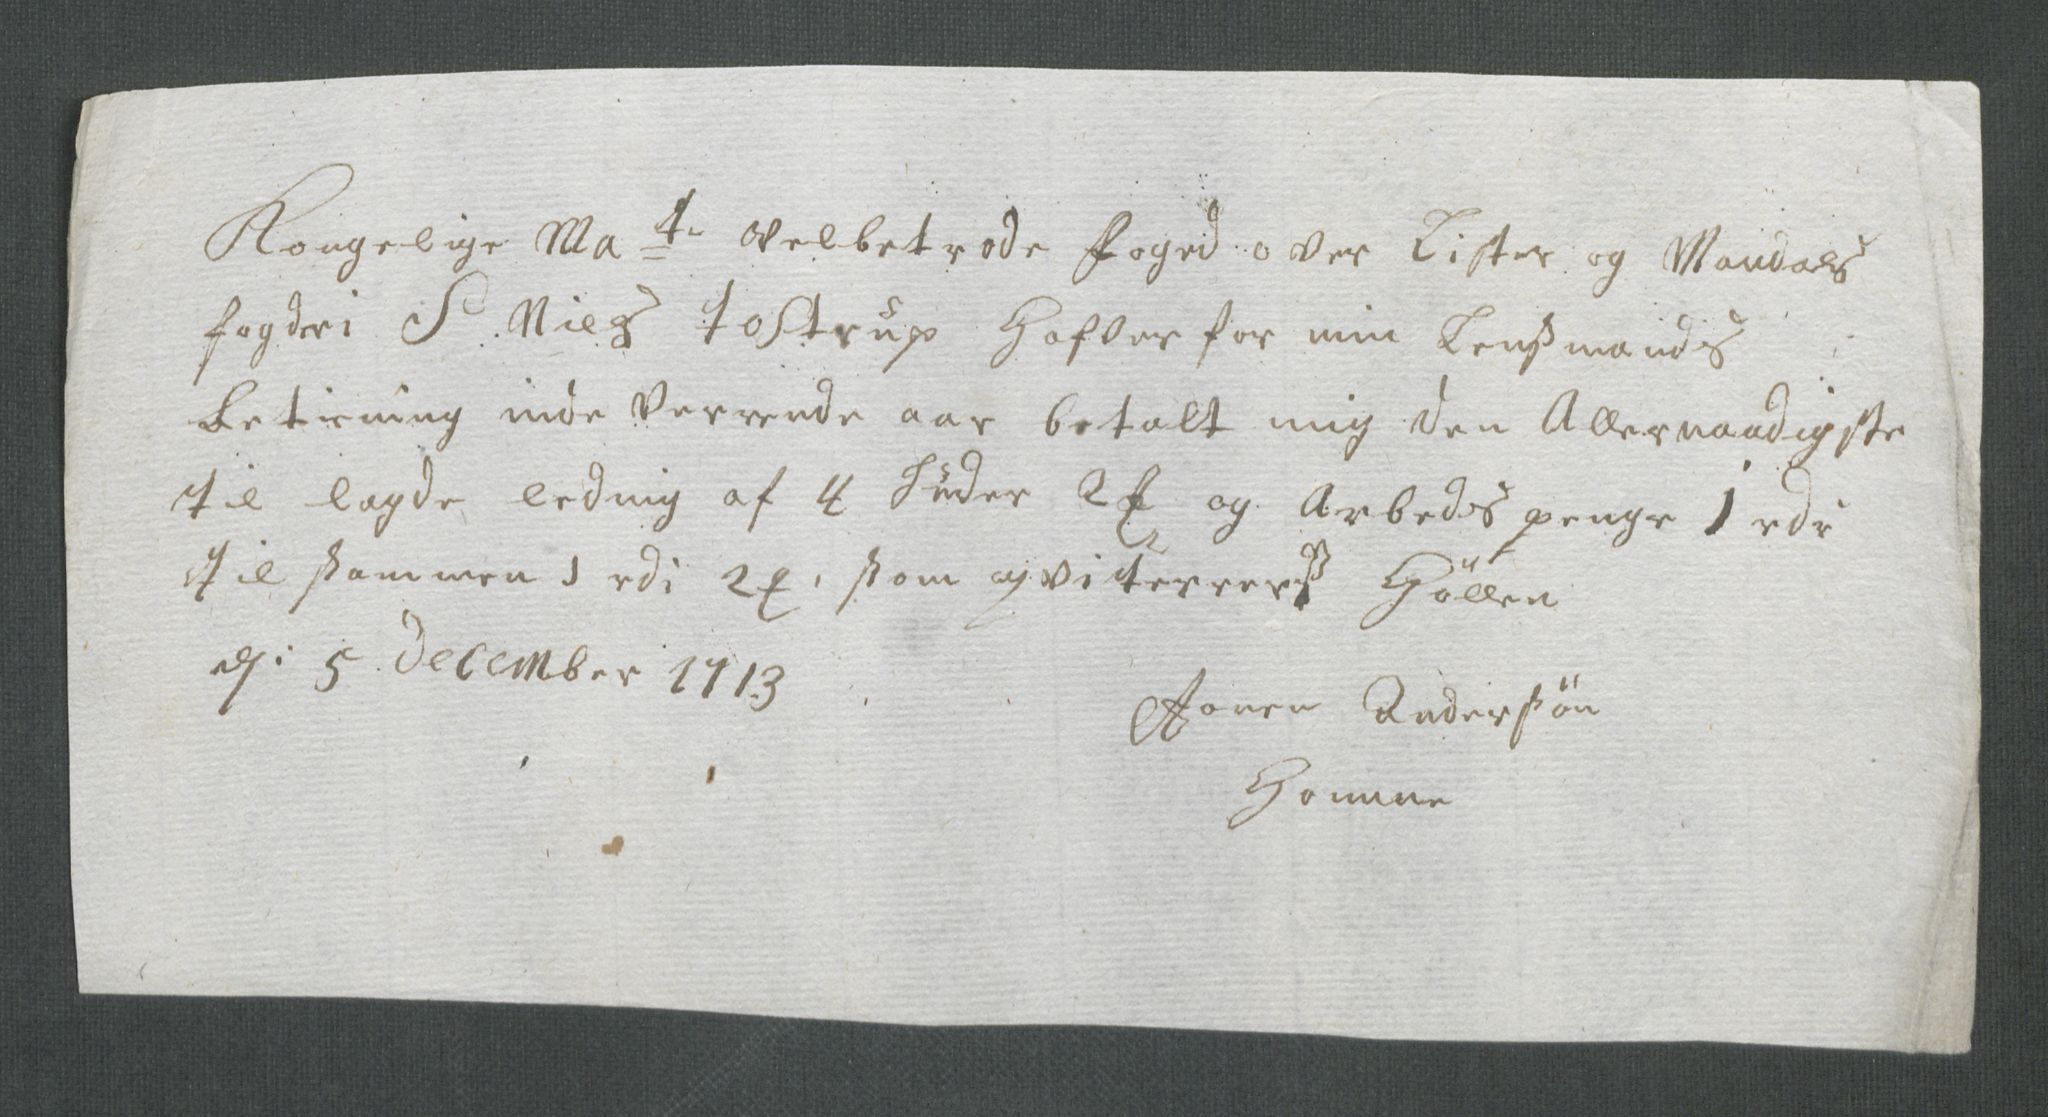 Kongelige Ma^te velbetrode foged over Lister og Mandals
fogderi S. Niels tostrup Hafver for min Lenßmands
betiening inde verrende aar betalt mig den Allernaadigste
til lagde ledning af 4 Huder 2 og Arbeds penge 1 rdr
til ßammen 1 rdr 2 ßom qviterrerß Höllen
5 December 1713
Aanen Anderßön
Homme